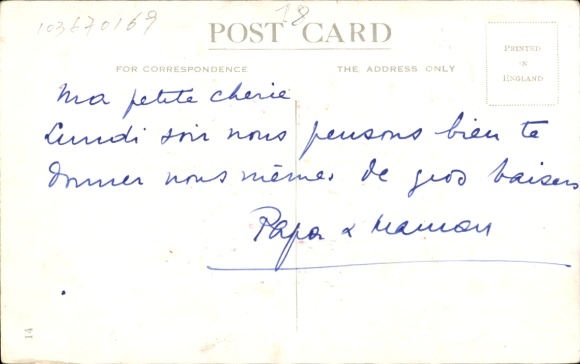 103670169
18
POST CARD
FOR CORRESPONDENCE
THE ADDRESS ONLY
PRINTED
IN
ENGLAND
Ma petite cherie
Lundi soir nous pensons bien te
donner nous mêmes de gros baisers
Papa & Maman
14